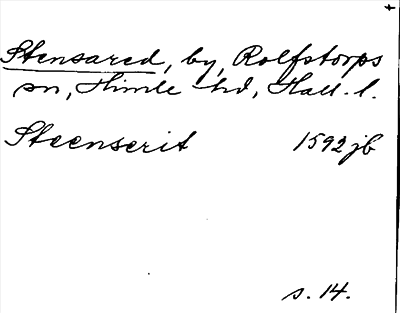 Stensared, by, Rolfstorps
sn, Himle hd, Hall. l.
Steenserit 1592 jb
s. 14.